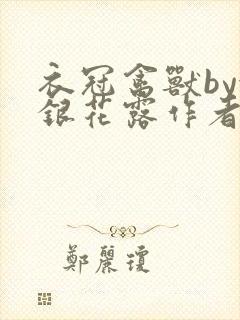 衣冠禽獸by
銀花露作者
鄭麗瓊